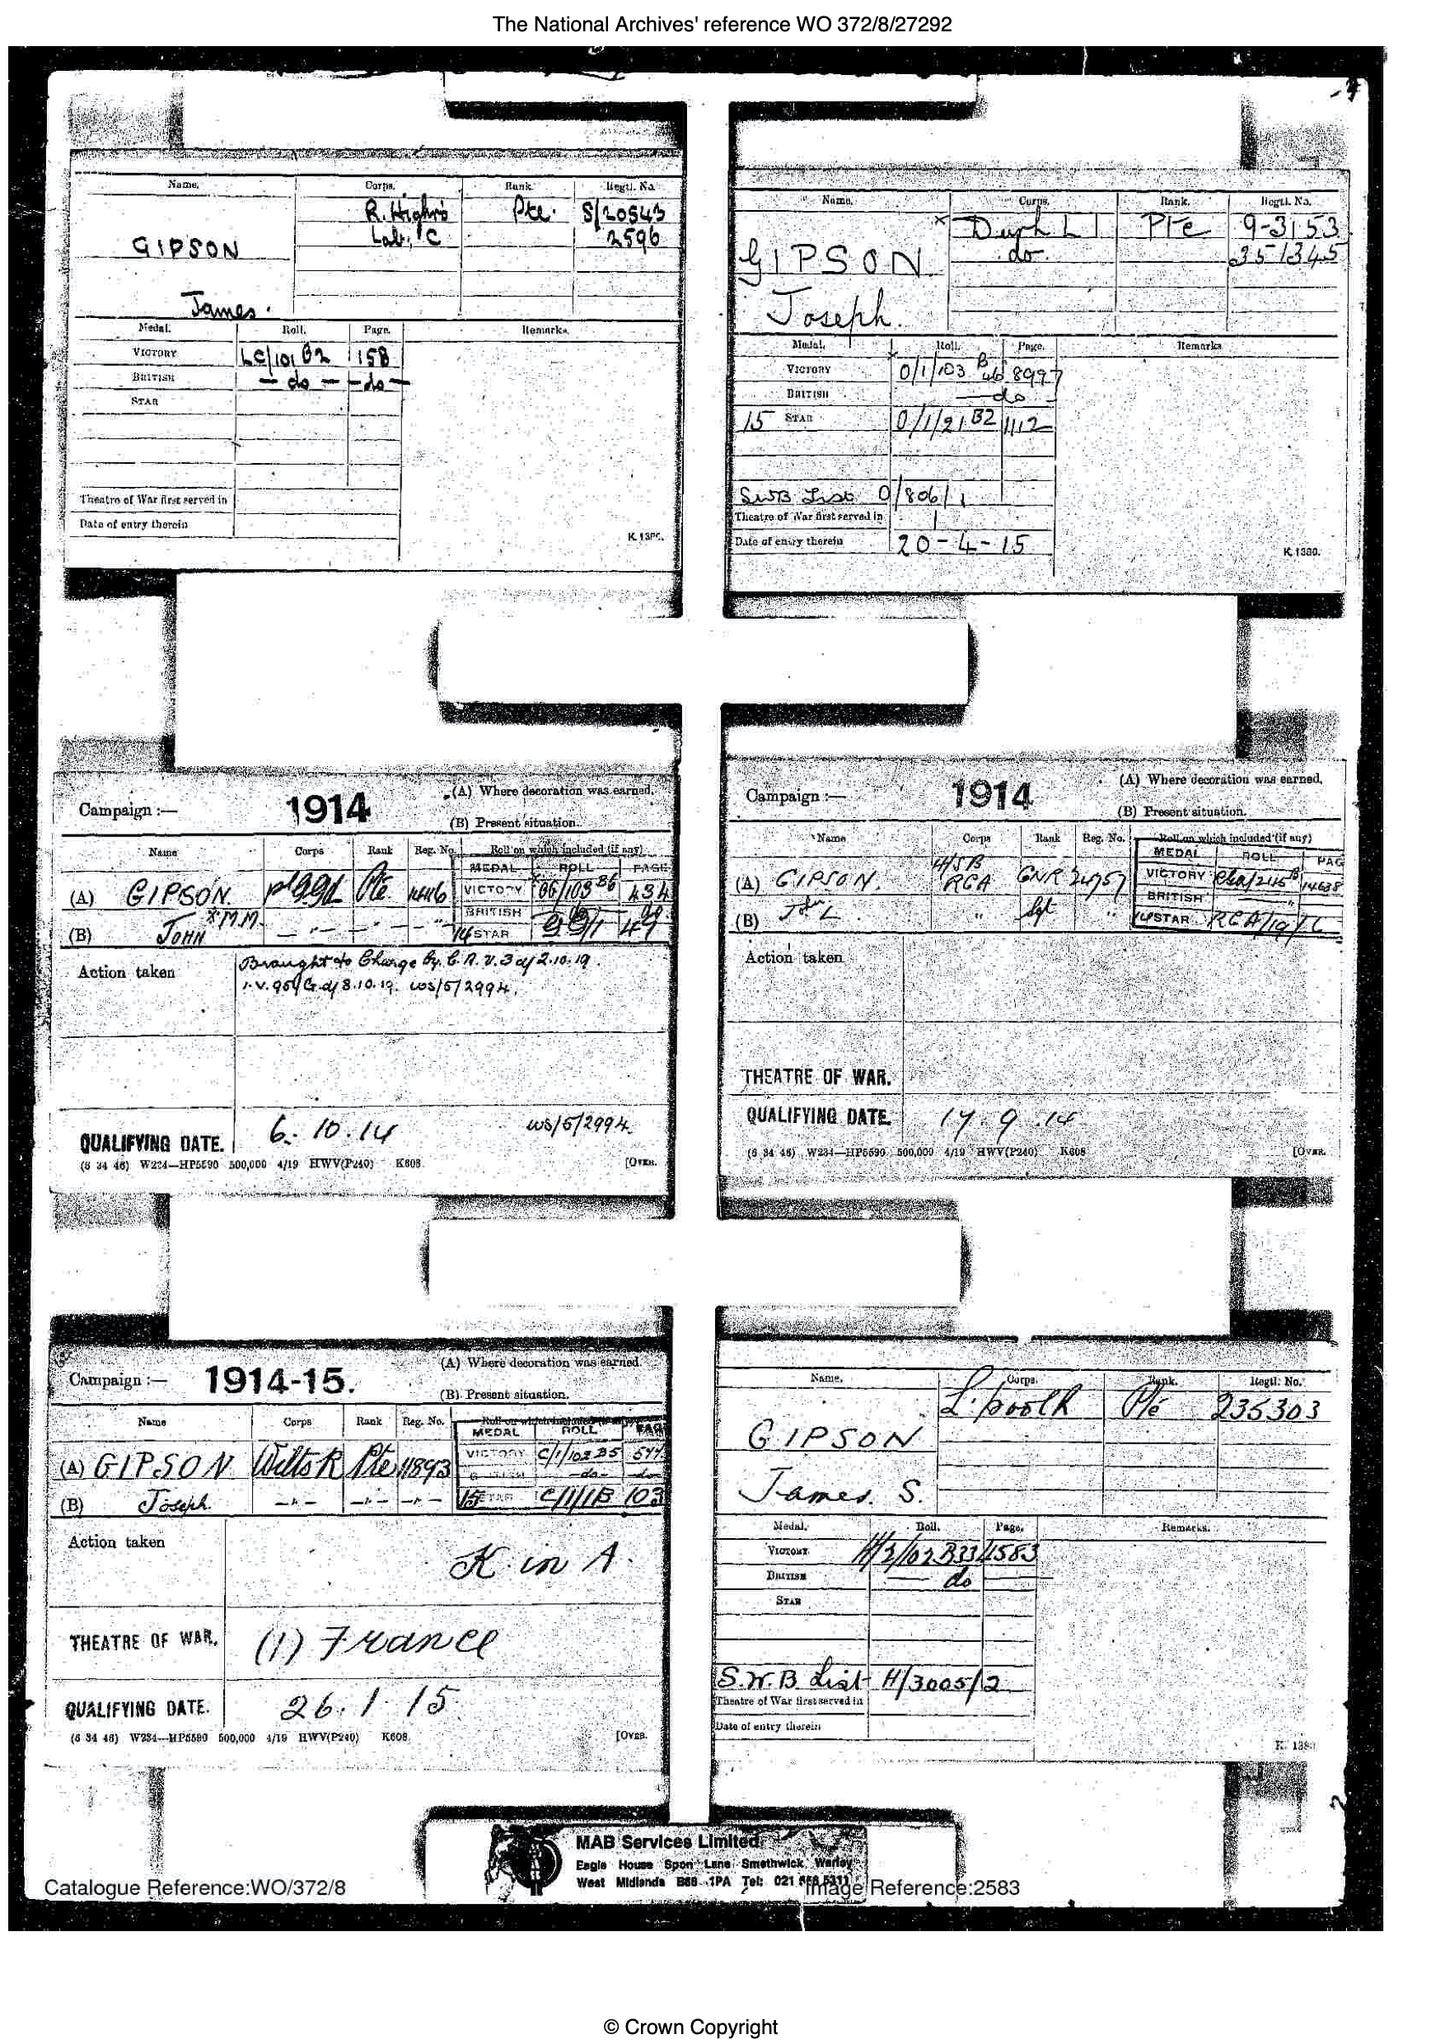 The National Archives' reference WO 372/8/27292
Name. Corps. Rank. Regtl. No.
R. Highrs Pte. S/20543
Lab. C 2596
GIPSON
James.
Medal. Roll. Page. Remarks.
VICTORY LC/101 B2 158
BRITISH — do — — do —
STAR
Theatre of War first served in
Date of entry therein
K. 1380.
Name. Corps. Rank. Regtl. No.
x Durh L I Pte 9-3153
do 351345
GIPSON
Joseph.
Medal. Roll. Page. Remarks
VICTORY 0/1/103 B46 8997
BRITISH — do
15 STAR 0/1/21 B2 1112
SWB List 0/806/1
Theatre of War first served in 1
Date of entry therein 20-4-15
K. 1380.
Campaign :— 1914 (A) Where decoration was earned.
(B) Present situation.
Name Corps Rank Reg. No. Roll on which included (if any)
MEDAL ROLL PAGE
(A) GIPSON Pte VICTORY 434
BRITISH do
(B) JOHN * M.M. 14 STAR 47
Action taken Brought to Charge by C.R.V. 3 d/ 2.10.19.
8.10.19. WS/5/2994.
QUALIFYING DATE. 6.10.14 WS/5/2994
(6 34 46) W234—HP5590 500,000 4/19 HWV(P240) K608 [OVER.
Campaign :— 1914 (A) Where decoration was earned.
(B) Present situation.
Name Corps Rank Reg. No. Roll on which included (if any)
MEDAL ROLL PAG
(A) GIPSON. RGA GNR 24757 VICTORY 14638
BRITISH
(B) L " Sgt " 14 STAR RGA/19
Action taken
THEATRE OF WAR.
QUALIFYING DATE. 17.9.14
(6 34 46) W234—HP5590 500,000 4/19 HWV(P240) K608 [OVER.
Campaign :— 1914-15. (A) Where decoration was earned.
(B) Present situation.
Name Corps Rank Reg. No. Roll on which included
MEDAL ROLL PAGE
(A) GIPSON Wilts R Pte 11893 VICTORY C/1/102 B5 577
— do — do
(B) Joseph. —"— —"— —"— 15 STAR C/1/1B 103
Action taken
K in A.
THEATRE OF WAR. (1) France
QUALIFYING DATE. 26.1.15.
(6 34 46) W234—HP5590 500,000 4/19 HWV(P240) K608 [OVER.
Name. Corps. Rank. Regtl. No.
L'pool R Pte 235303
GIPSON
James. S.
Medal. Roll. Page. Remarks.
VICTORY H/2/102 B33 4583
BRITISH — do —
STAR
S.W.B List H/3005/2
Theatre of War first served in
Date of entry therein
K. 1380
MAB Services Limited
Eagle House Spon Lane Smethwick Warley
West Midlands B66 1PA Tel: 021
Catalogue Reference:WO/372/8 Image Reference:2583
© Crown Copyright